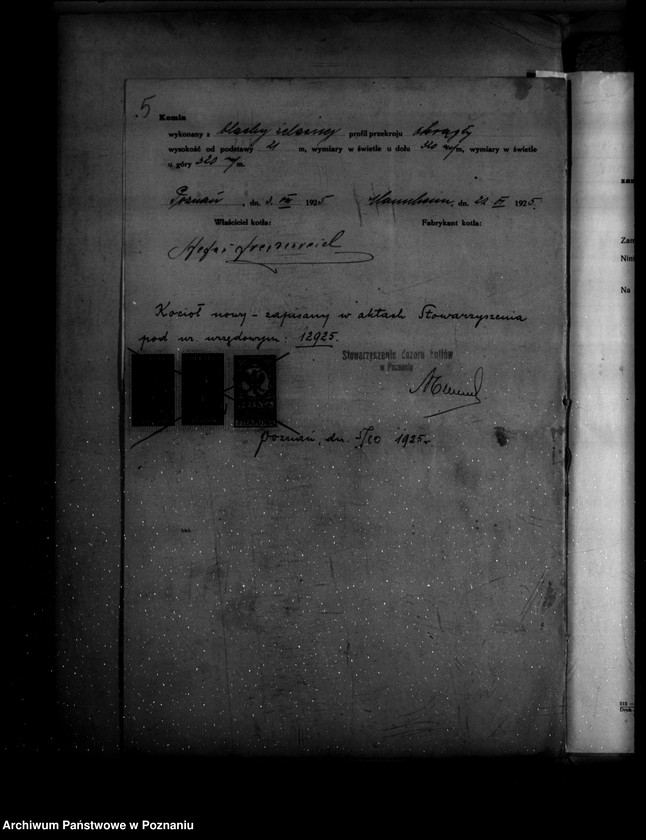 5
Komin
wykonany z blachy żelaznej profil przekroju okrągły
wysokość od podstawy 21 m, wymiary w świetle u dołu 320 m/m, wymiary w świetle
u góry 320 m/m.
Poznań, dn. 3. VII 1925 Mannheim, dn. 20 VI 1925.
Właściciel kotła: Fabrykant kotła:
Kocioł nowy - zapisany w aktach Stowarzyszenia
pod nr. urzędowym: 12925.
Stowarzyszenie Dozoru Kotłów
w Poznaniu
Poznań, dn. 5/10 1925r.
zaś
Zam
Nini
Na
Druk.
Archiwum Państwowe w Poznaniu